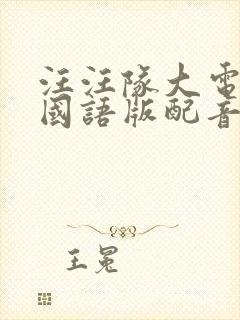 汪汪隊大電
國語版配音
王冕